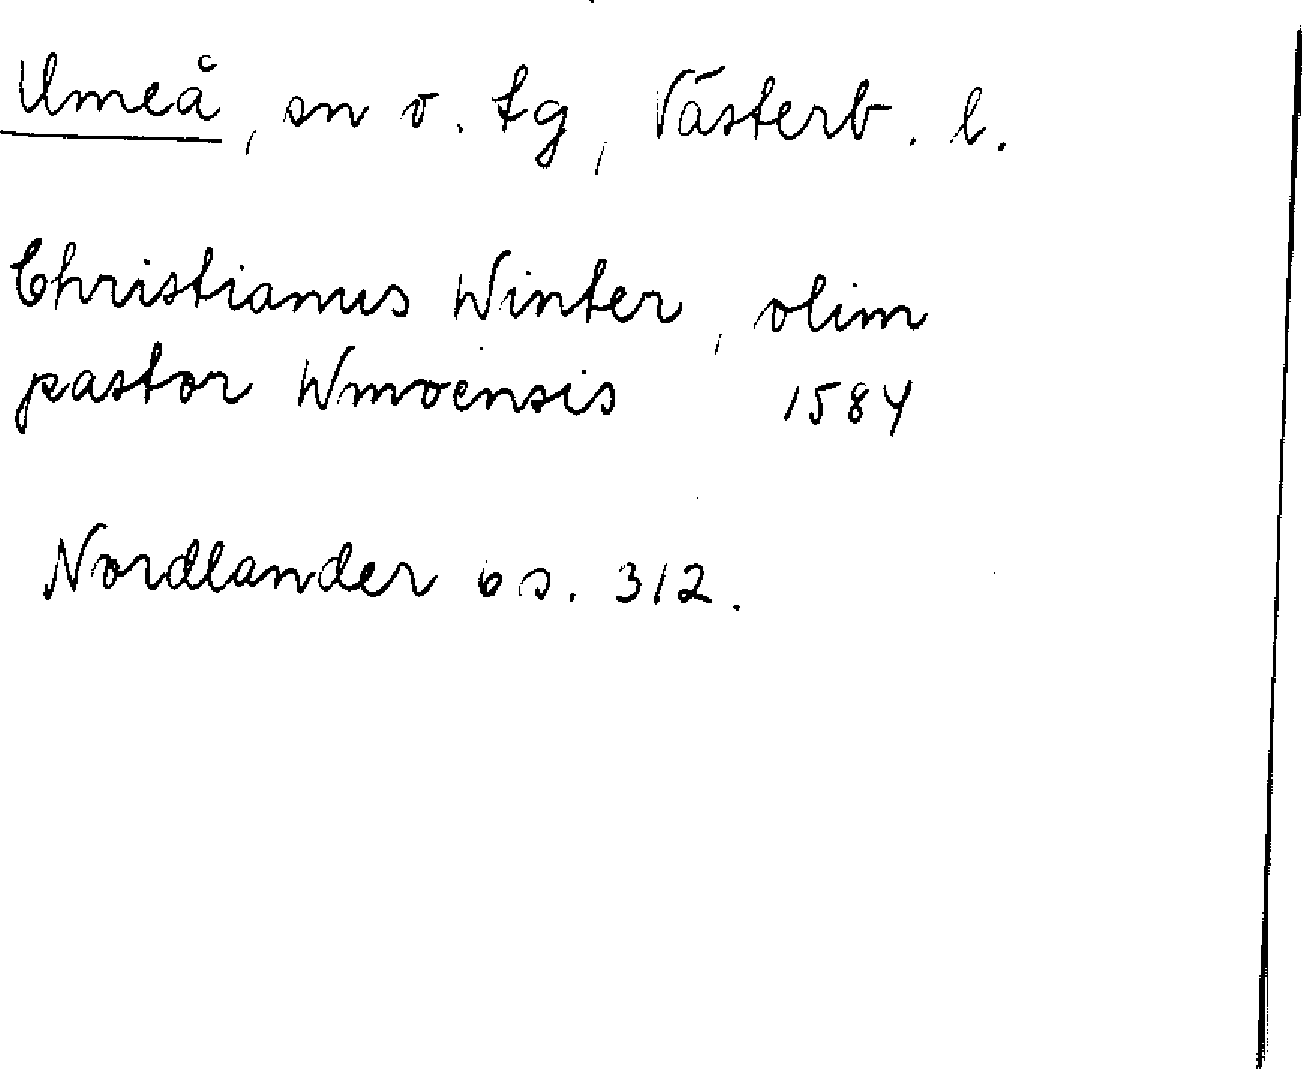 Umeå, sn o. tg, Västerb. l.
Christianus Winter, olim
pastor Wmoensis 1584
Nordlander 6 s. 312.